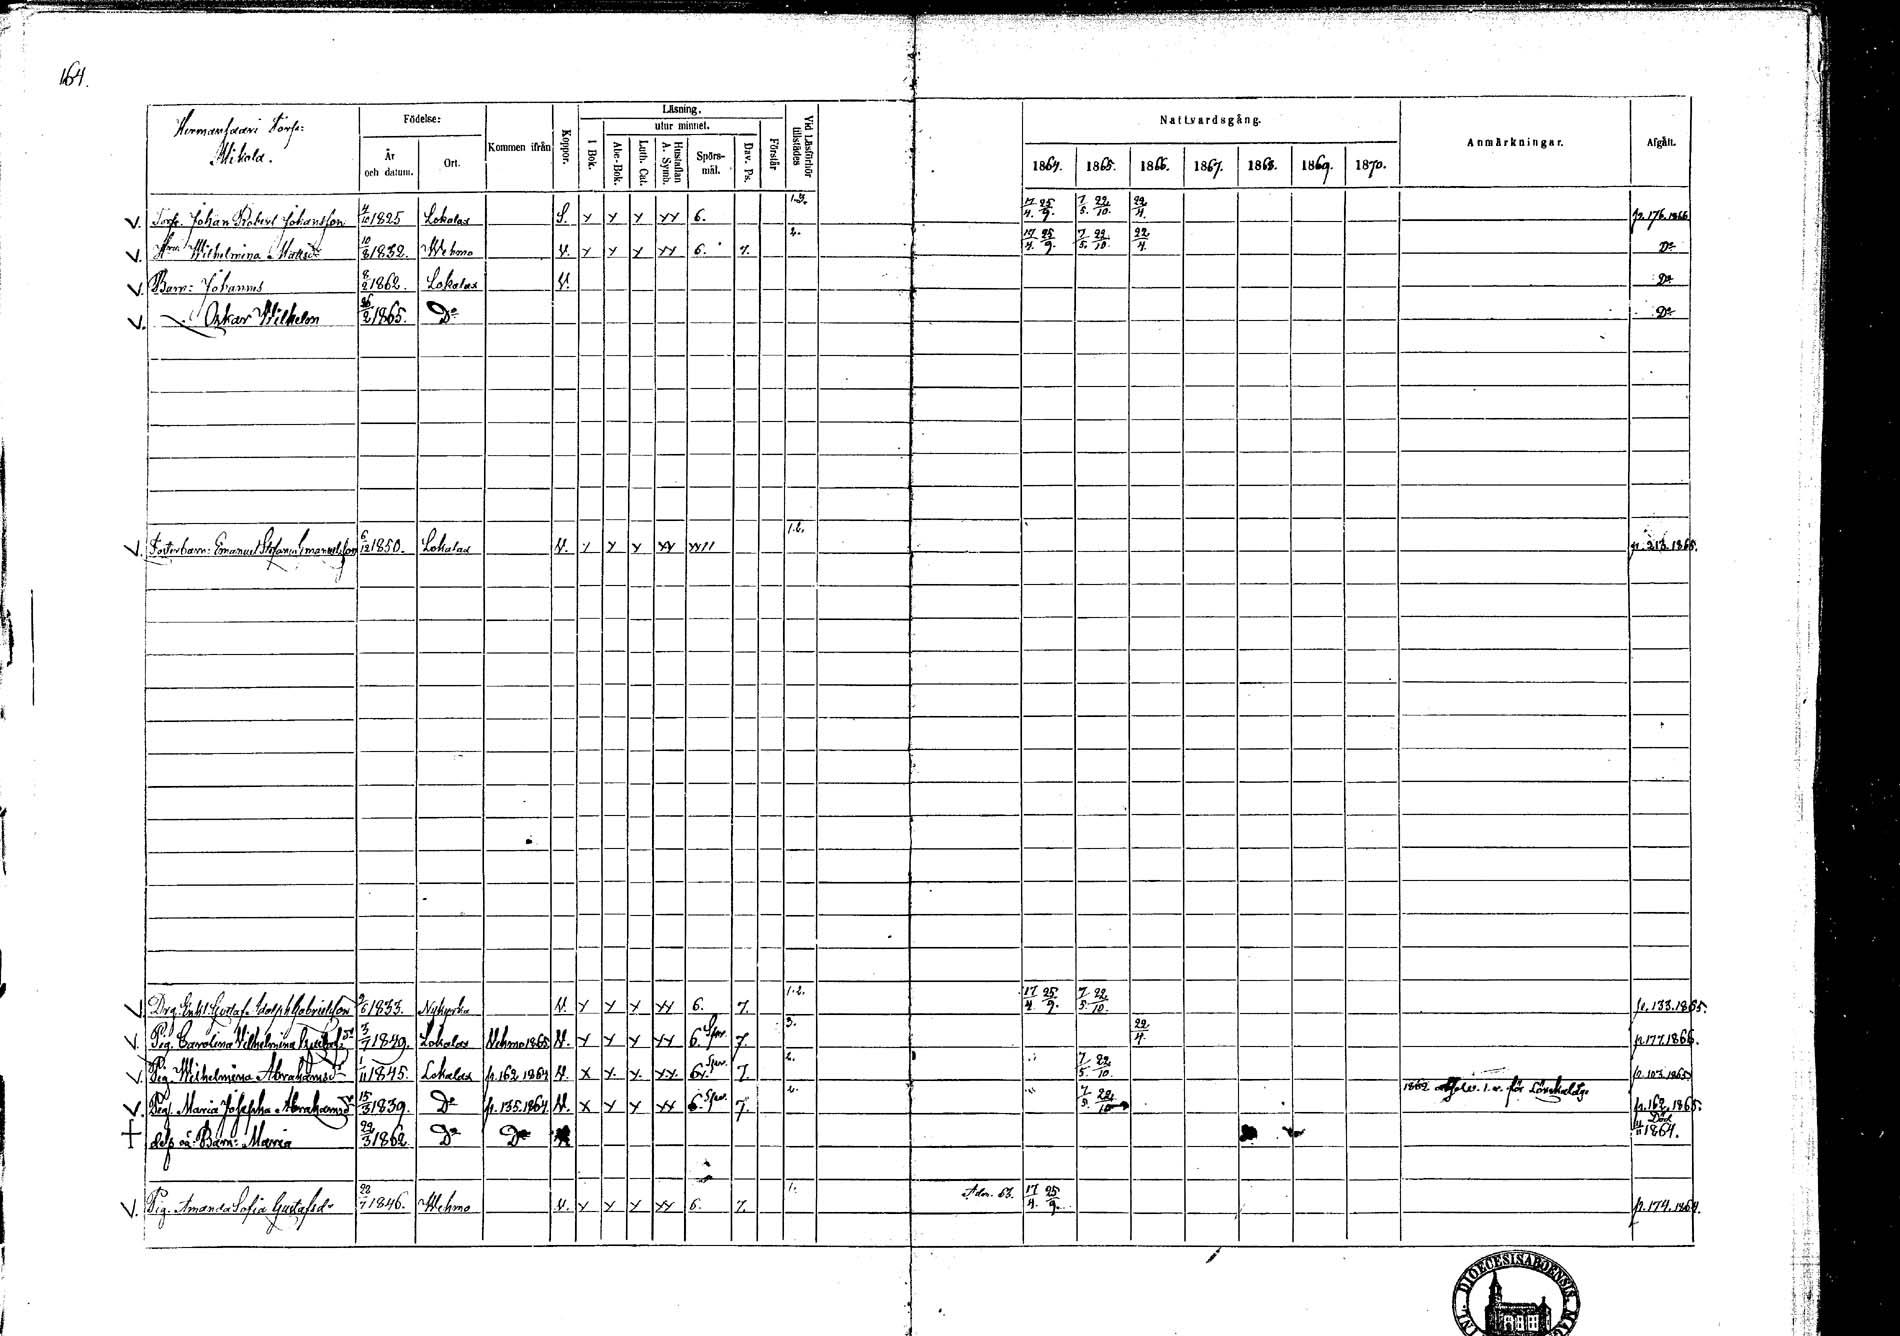 164.
Torp:
Mikola.
Födelse:
År och datum.
Ort.
Kommen ifrån
Koppor.
Läsning.
I Bok.
utur minnet.
Abc-Bok.
Luth. Cat.
Hustaflan A. Symb.
Spörs-mål.
Dav. Ps.
Förstår
Vid Läsförhör tillstädes
Nattvardsgång.
1864. 1865. 1866. 1867. 1868. 1869. 1870.
Anmärkningar.
Afgått.
Johan Robert Johansson 4/10 1825 Lokalax S. x x x xx 6. 17/4. 25/9. 7/5. 22/10. 22/4. p. 176. 1866
V. Wilhelmina Matsdr 10/8 1832. Wehmo V. x x x xx 6. 7. 2. 17/4. 25/9. 7/5. 22/10. 22/4. Do
V. Barn: Johannes 8/2 1862. Lokalax V. Do
V. Oskar Wilhelm 26/2 1865. Do Do
V. Fosterbarn: Emanuel Stefanus Emanuelsson 6/12 1850. Lokalax V. x x x xx xx11 1.2. p. 213. 1865.
V. Drg. Enkl. Gustaf Adolph Gabrielsson 2/6 1833. Nykyrka V. x x x xx 6. 7. 1.2. 17/4. 25/9. 7/5. 22/10. p. 133. 1865.
V. Pig. Carolina Vilhelmina 3/7 1849. Lokalax Vehmo 1865. V. x x x xx 6. 7. 3. 22/4. p. 177. 1866.
V. Pig. Wilhelmina Abrahamsdr 1/11 1845. Lokalax p. 162 1864 V. x x. x. xx. 7. 2. 7/5. 22/10. p. 103. 1865.
V. Pig. Maria Josepha Abrahamsdr 15/3 1839. Do p. 135. 1864. V. x x x xx 6. 7. 2. 7/5. 22/10. 1862 för Lönskaläge p. 162. 1865.
† oä. Barn: Maria 22/3 1862 Do Do Död 1864.
V. Pig. Amanda Sofia Gustafsdr 22/7 1846. Wehmo V. x x x xx 6. 7. 1. Adm. 63. 17/4. 25/9. p. 174. 1864.
DIOECESIS ABOENSIS